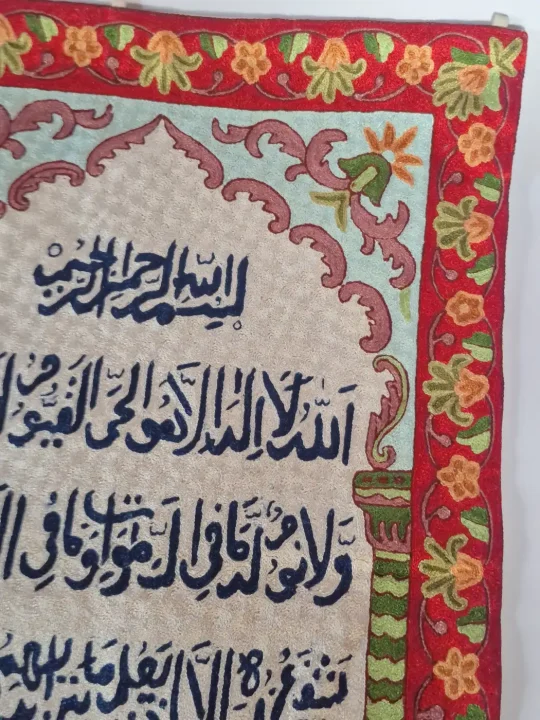 بسم الله الرحمن الرحيم
الله لا اله الا هو الحي القيوم
ولا نوم له ما في السموات وما في
يشفع عنده الا يعلم ما بين